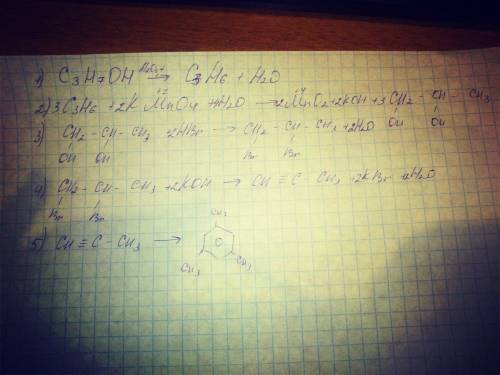 1) C3H7OH Al2O3,t → C3H6 + H2O
2) 3C3H6 + 2KMnO4 + 4H2O → 2MnO2 + 2KOH + 3CH2 - CH - CH3
OH OH
3) CH2 - CH - CH3 + 2HBr → CH2 - CH - CH3 + 2H2O
OH OH Br Br
4) CH2 - CH - CH3 + 2KOH → CH ≡ C - CH3 + 2KBr + 2H2O
Br Br
5) CH ≡ C - CH3 →
CH3
C
CH3 CH3